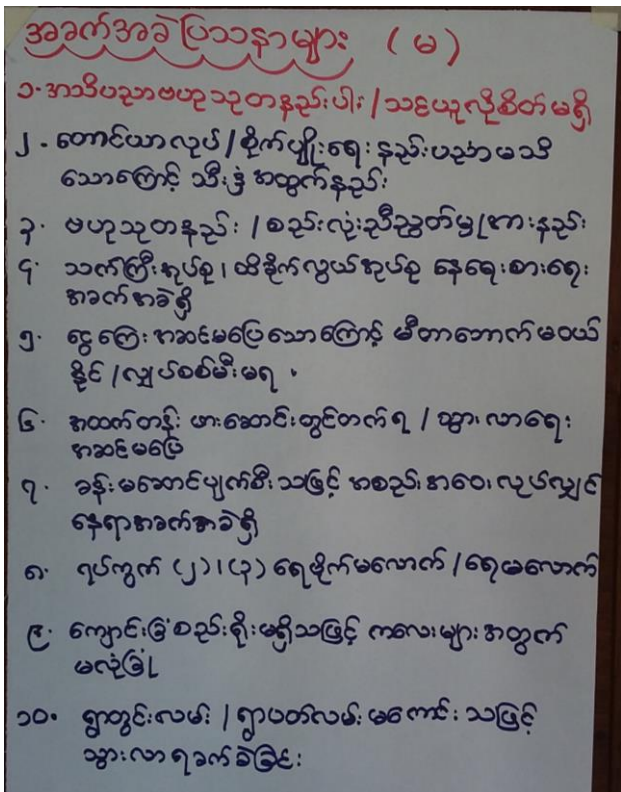 အခက်အခဲပြဿနာများ (မ)
၁. အသိပညာဗဟုသုတနည်းပါး / သင်ယူလိုစိတ်မရှိ
၂. တောင်ယာလုပ် / စိုက်ပျိုးရေးနည်းပညာမသိ
သောကြောင့် သီးနှံအထွက်နည်း
၃. ဗဟုသုတနည်း / စည်းလုံးညီညွတ်မှုအားနည်း
၄. သက်ကြီးအုပ်စု၊ ထိခိုက်လွယ်အုပ်စု နေရေးစားရေး
အခက်အခဲရှိ
၅. ငွေကြေးအဆင်မပြေသောကြောင့် မီတာဘောက်မဝယ်
နိုင် / လျှပ်စစ်မီးမရ
၆. အထက်တန်း ဖားဆောင်းတွင်တက်ရ / သွားလာရေး
အဆင်မပြေ
၇. ခန်းမဆောင်ပျက်စီးသဖြင့် အစည်းအဝေးလုပ်လျှင်
နေရာအခက်အခဲရှိ
၈. ရပ်ကွက် (၂)၊ (၃) ရေပိုက်မလောက် / ရေမလောက်
၉. ကျောင်းခြံစည်းရိုးမရှိသဖြင့် ကလေးများအတွက်
မလုံခြုံ
၁၀. ရွာတွင်းလမ်း / ရွာပတ်လမ်းမကောင်းသဖြင့်
သွားလာရခက်ခဲခြင်း